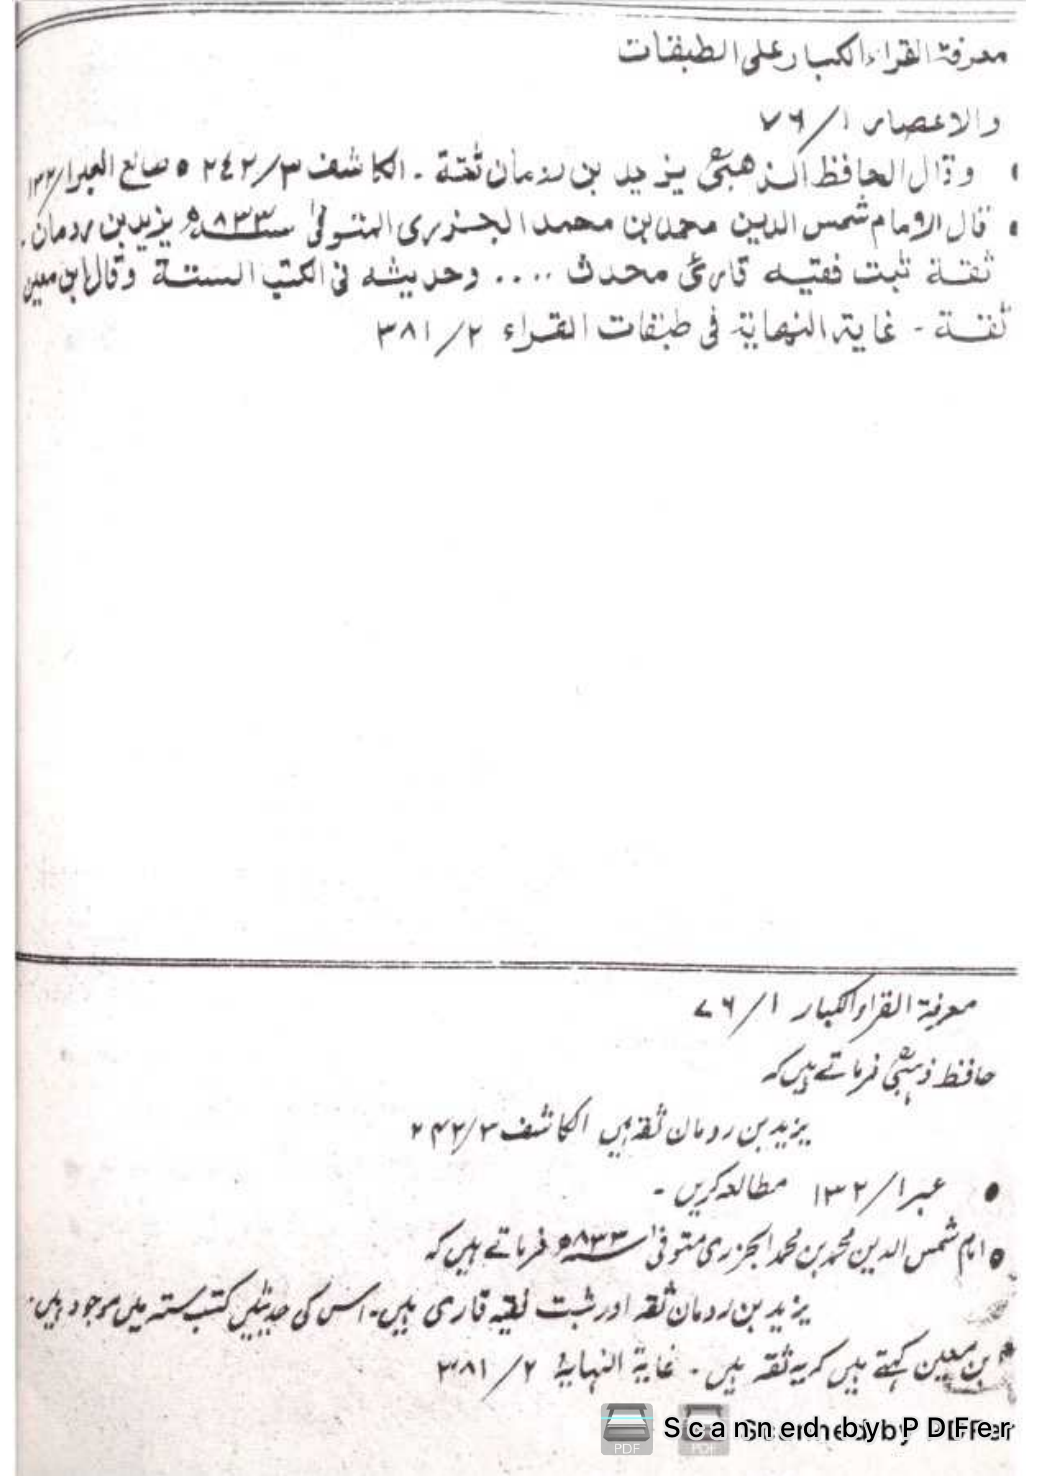 معرفة القراء الكبار على الطبقات
والاعصار ۱/۷۶
• وقال الحافظ الذهبیؒ یزید بن رومان ثقة ۔ الکاشف ۳/۲٤۲ ○ طالع العبر ۱/۱۳۲
• قال الامام شمس الدین محمد بن محمد الجزری المتوفیٰ سنہ ۸۳۳ھ یزید بن رومان ۔
ثقة ثبت فقیه قاریٔ محدث .... وحدیثه فی الکتب الستة وقال ابن معین
ثقة ۔ غایة النهایة فی طبقات القراء ۲/۳۸۱
معرفة القراء الکبار ۱/۷۶
حافظ ذہبیؒ فرماتے ہیں کہ
یزید بن رومان ثقہ ہیں الکاشف ۳/۲۴۲
• عبر ۱/۱۳۲ مطالعہ کریں ۔
○ امام شمس الدین محمد بن محمد الجزری متوفیٰ سنہ ۸۳۳ھ فرماتے ہیں کہ
یزید بن رومان ثقہ اور ثبت فقیہ قاری ہیں ۔ اس کی حدیثیں کتب ستہ میں موجود ہیں ۔
• بن معین کہتے ہیں کہ یہ ثقہ ہیں ۔ غایة النهایة ۲/۳۸۱
Scanned by PDFer
Scanned by PDFer